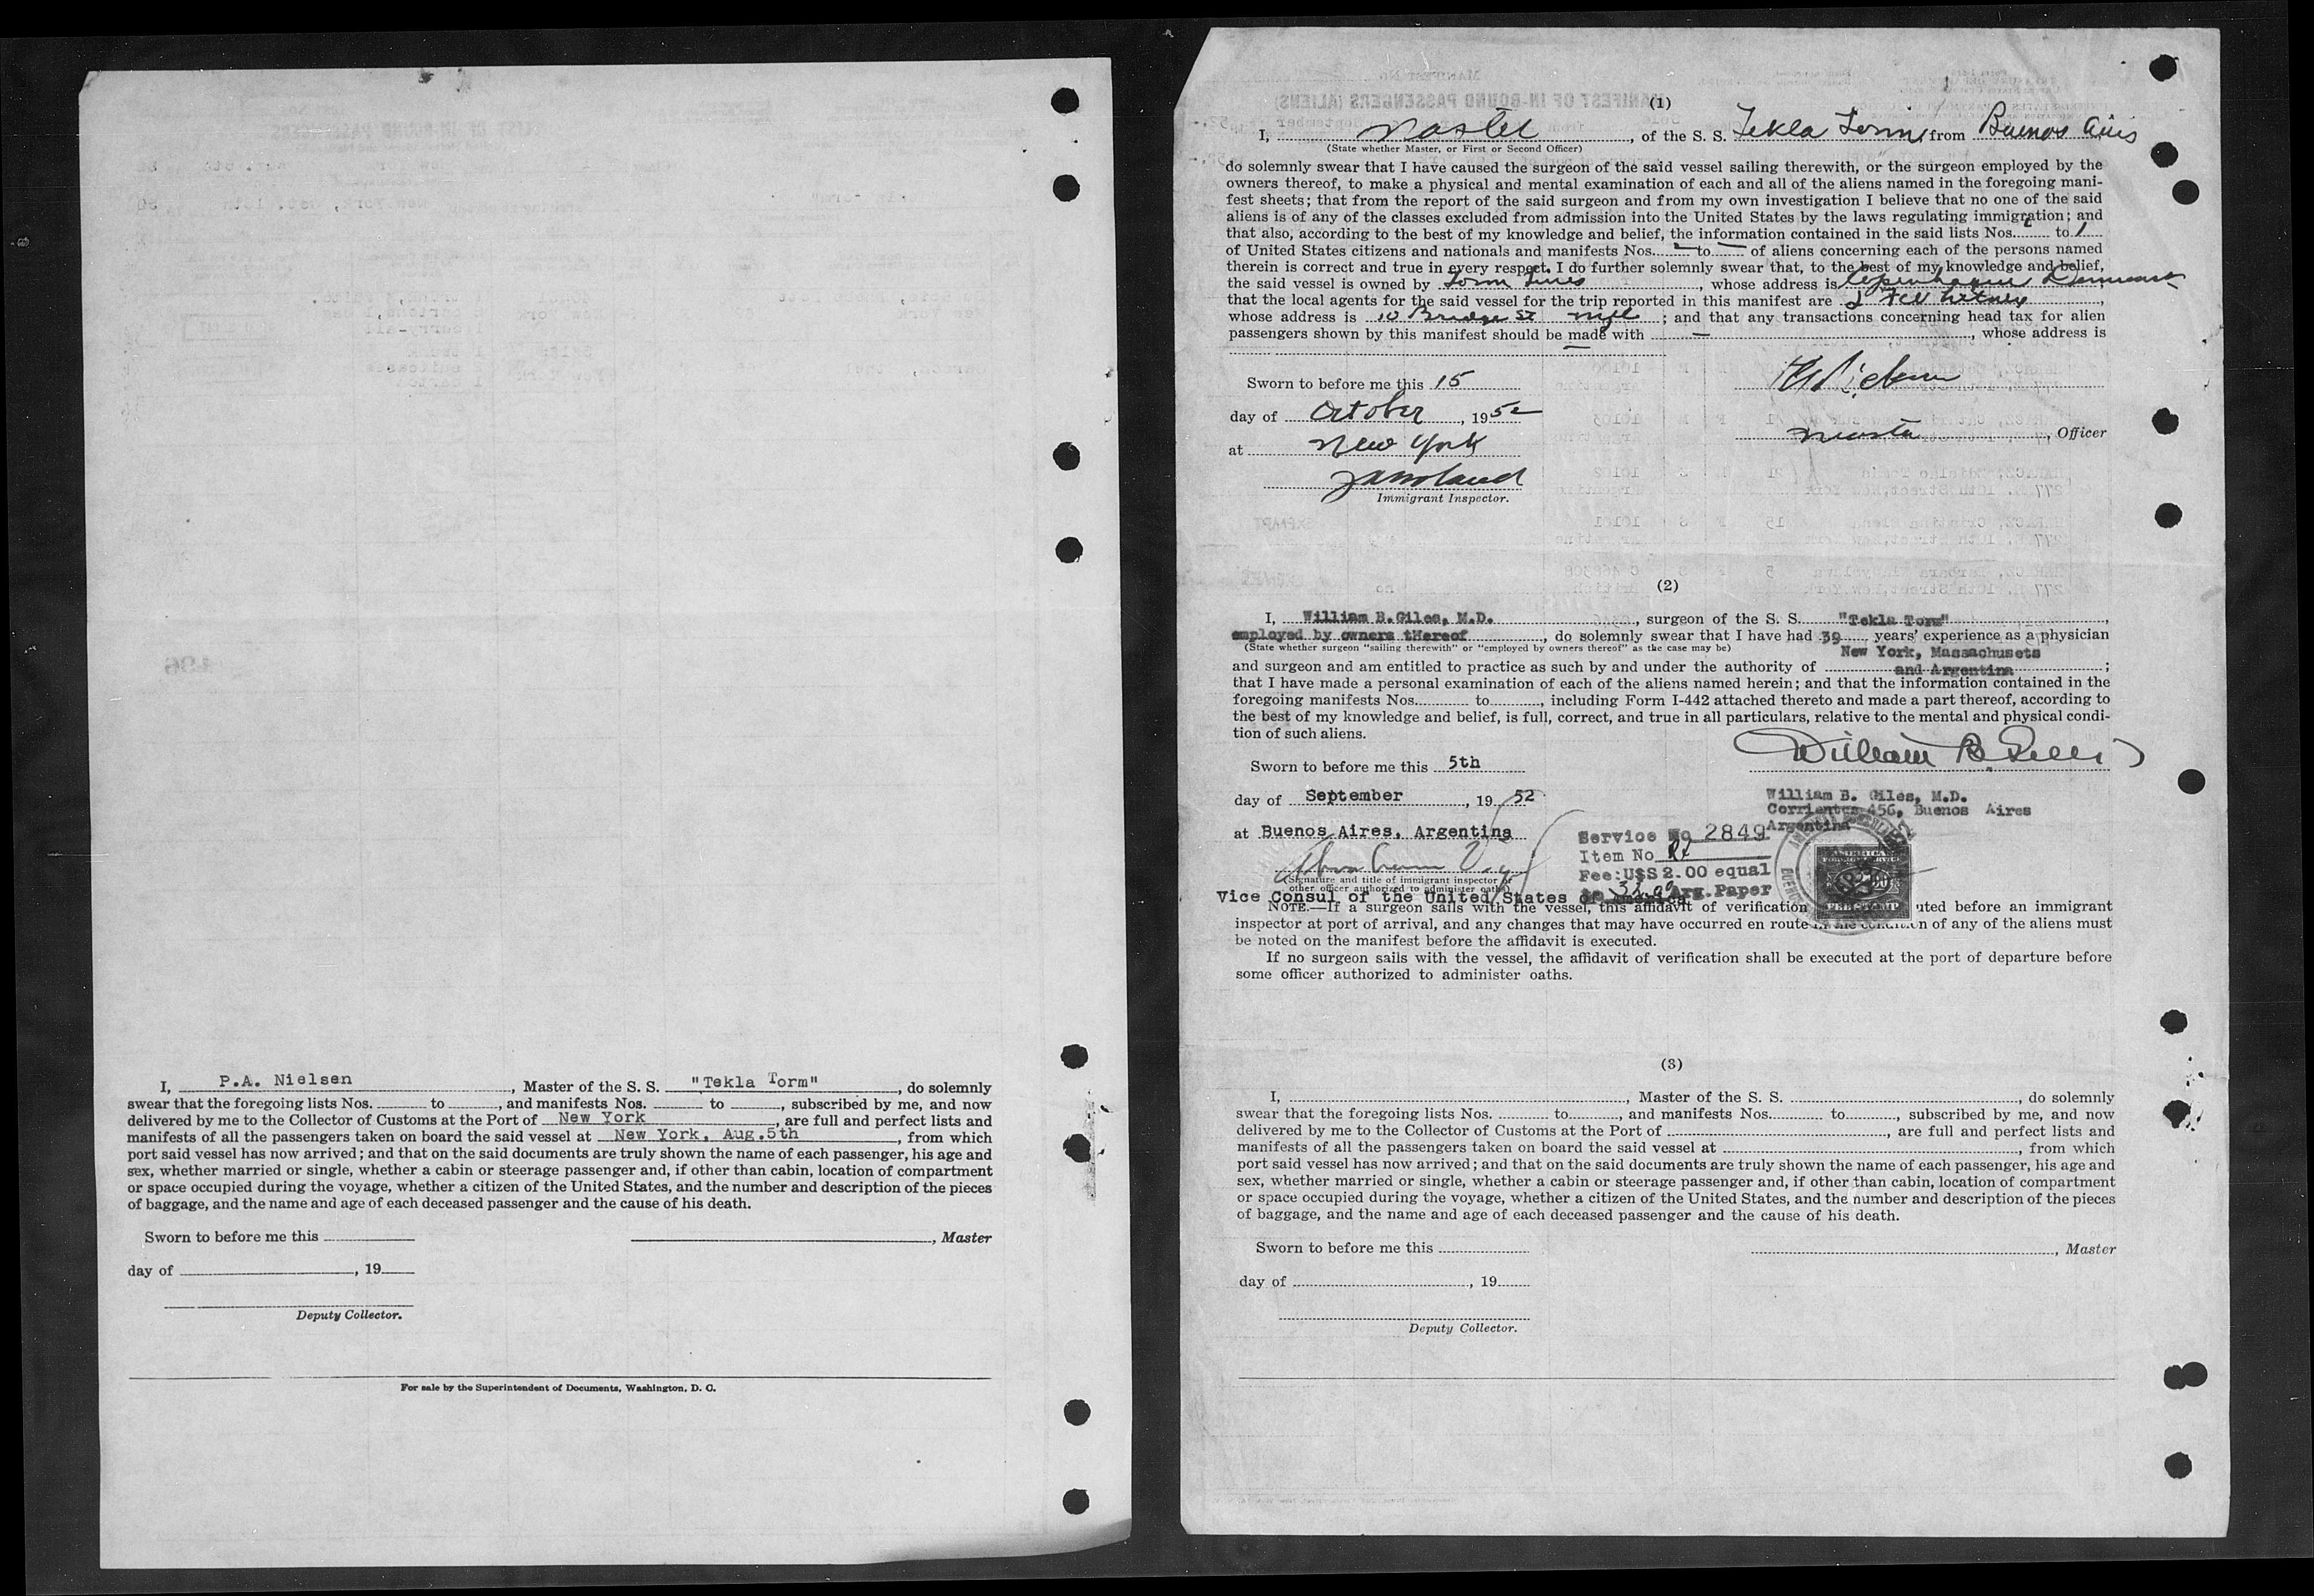 I, P.A. Nielsen, Master of the S. S. "Tekla Torm", do solemnly
swear that the foregoing lists Nos. to, and manifests Nos. to, subscribed by me, and now
delivered by me to the Collector of Customs at the Port of New York, are full and perfect lists and
manifests of all the passengers taken on board the said vessel at New York, Aug.5th, from which
port said vessel has now arrived; and that on the said documents are truly shown the name of each passenger, his age and
sex, whether married or single, whether a cabin or steerage passenger and, if other than cabin, location of compartment
or space occupied during the voyage, whether a citizen of the United States, and the number and description of the pieces
of baggage, and the name and age of each deceased passenger and the cause of his death.
Sworn to before me this
, Master
day of , 19
Deputy Collector.
For sale by the Superintendent of Documents, Washington, D. C.
(1)
I, Master, of the S. S. Tekla Torm from Buenos Aires
(State whether Master, or First or Second Officer)
do solemnly swear that I have caused the surgeon of the said vessel sailing therewith, or the surgeon employed by the
owners thereof, to make a physical and mental examination of each and all of the aliens named in the foregoing mani-
fest sheets; that from the report of the said surgeon and from my own investigation I believe that no one of the said
aliens is of any of the classes excluded from admission into the United States by the laws regulating immigration; and
that also, according to the best of my knowledge and belief, the information contained in the said lists Nos. to 1
of United States citizens and nationals and manifests Nos. — to — of aliens concerning each of the persons named
therein is correct and true in every respect. I do further solemnly swear that, to the best of my knowledge and belief,
the said vessel is owned by Torm Lines, whose address is Copenhagen Denmark
that the local agents for the said vessel for the trip reported in this manifest are
whose address is 10 Bridge St ; and that any transactions concerning head tax for alien
passengers shown by this manifest should be made with —, whose address is
—
Sworn to before me this 15
day of October, 1952
Master, Officer
at New York
Immigrant Inspector.
(2)
I, William B.Giles, M.D., surgeon of the S. S. "Tekla Torm",
employed by owners tHereof, do solemnly swear that I have had 39 years' experience as a physician
(State whether surgeon "sailing therewith" or "employed by owners thereof" as the case may be)
New York, Massachusets
and surgeon and am entitled to practice as such by and under the authority of and Argentina;
that I have made a personal examination of each of the aliens named herein; and that the information contained in the
foregoing manifests Nos. to, including Form I-442 attached thereto and made a part thereof, according to
the best of my knowledge and belief, is full, correct, and true in all particulars, relative to the mental and physical condi-
tion of such aliens.
Sworn to before me this 5th
day of September, 19 52
William B. Giles, M.D.
Corrientes 456, Buenos Aires
Argentina
at Buenos Aires, Argentina
Service No 2849
Item No
Fee: U$S 2.00 equal
Arg. Paper
(Signature and title of immigrant inspector or
other officer authorized to administer oaths)
Vice Consul of the United States of America
NOTE.—If a surgeon sails with the vessel, this affidavit of verification uted before an immigrant
inspector at port of arrival, and any changes that may have occurred en route in the condition of any of the aliens must
be noted on the manifest before the affidavit is executed.
If no surgeon sails with the vessel, the affidavit of verification shall be executed at the port of departure before
some officer authorized to administer oaths.
(3)
I, , Master of the S. S. , do solemnly
swear that the foregoing lists Nos. to, and manifests Nos. to, subscribed by me, and now
delivered by me to the Collector of Customs at the Port of , are full and perfect lists and
manifests of all the passengers taken on board the said vessel at , from which
port said vessel has now arrived; and that on the said documents are truly shown the name of each passenger, his age and
sex, whether married or single, whether a cabin or steerage passenger and, if other than cabin, location of compartment
or space occupied during the voyage, whether a citizen of the United States, and the number and description of the pieces
of baggage, and the name and age of each deceased passenger and the cause of his death.
Sworn to before me this
, Master
day of , 19
Deputy Collector.